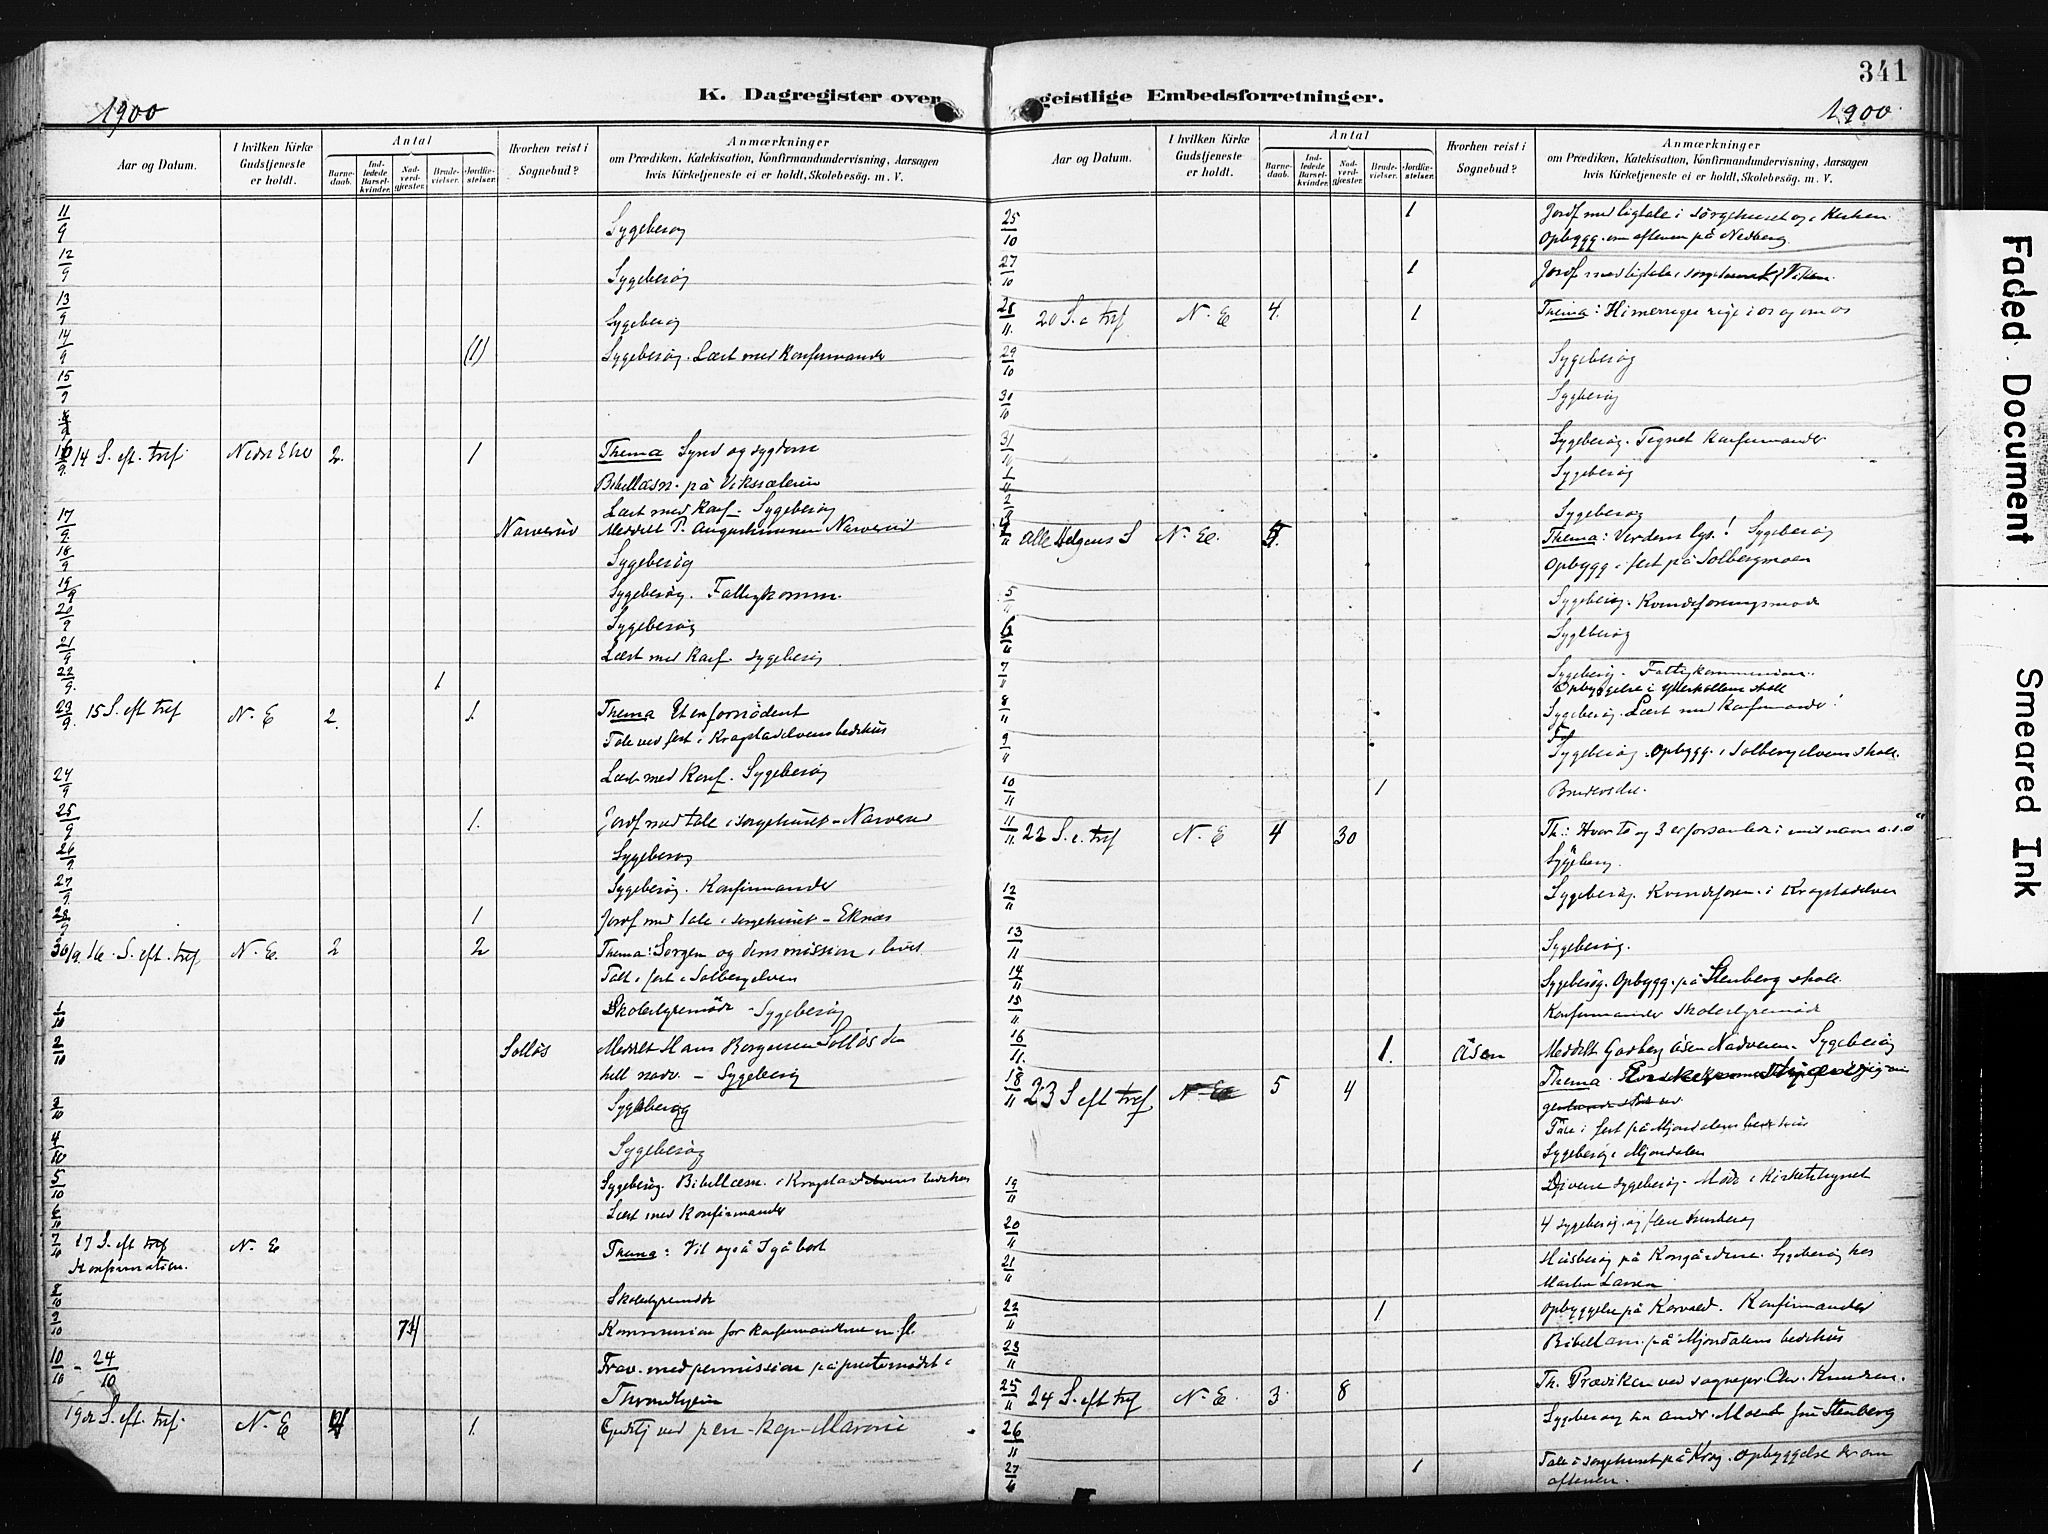 341
1900
K. Dagregister over
geistlige Embedsforretninger.
1900
Aar og Datum.
I hvilken Kirke Gudstjeneste er holdt.
Antal
Barnedaab.
Indledede Barselkvinder.
Nadverdgjester.
Brudevielser.
Jordfæstelser.
Hvorhen reist i Sognebud?
Anmærkninger
om Prædiken, Katekisation, Konfirmandundervisning, Aarsagen
hvis Kirketjeneste ei er holdt, Skolebesøg. m. V.
11/9 Sygebesøg
12/9 Sygebesøg
13/9 Sygebesøg
14/9 (1) Sygebesøg. Læst med Konfirmander
15/9
16/9 14 S. eft. tref. Nedre Eker 2. 1 Thema Synd og sygdom
Bibellæsn. på
17/9 Læst med Konf. Sygebesøg
Narverud Meddelt P. Narverud
18/9 Sygebesøg
19/9 Sygebesøg. Fattigkomm.
20/9 Sygebesøg
21/9 Læst med Konf. Sygebesøg
22/9. 1
23/9. 15 S. eft tref N. E 2. 1. Thema Et er fornødent
Tale ved fest i Kragstadelvens bedehus
24/9 Læst med Konf. Sygebesøg
25/9 1. Jordf med tale i sørgehuset - Narverud
26/9. Sygebesøg
27/9. Sygebesøg. Konfirmander
28/9 1 Jordf med tale i sørgehuset - Eknæs
30/9. 16. S. eft. tref N. E. 2 2 Thema: Sorgen og dens mission i livet
Talt i fest i Solbergelven
1/10 Skolestyremöde - Sygebesøg
2/10 Solløs Meddelt Hans Borgersen Solløs den
hell nadv. - Sygebesøg
3/10 Sygebesøg
4/10 Sygebesøg
5/10 Sygebesøg. Bibellæsn. i Kragstadelvens bedehus
6/10 Læst med Konfirmander
7/10 17 S. eft tref N. E Thema: Vil også I gå bort
Konfirmation.
8/10 Skolestyremøde
9/10 Kommunion for konfirmanderne m. fl.
10/10 - 24/10 Frav. med permission på prestemødet i
Throndhjem
19de S. eft. tref. N. E 1. Gudstj ved pen. kap.
Aar og Datum.
I hvilken Kirke Gudstjeneste er holdt.
Antal
Barnedaab.
Indledede Barselkvinder.
Nadverdgjester.
Brudevielser.
Jordfæstelser.
Hvorhen reist i Sognebud?
Anmærkninger
om Prædiken, Katekisation, Konfirmandundervisning, Aarsagen
hvis Kirketjeneste ei er holdt, Skolebesøg. m. V.
25/10 1 Jordf med ligtale i sørgehuset og i kirken
Opbygg. om aftenen på Nedberg.
27/10 1 Jordf med ligtale i
28/11. 20 S. e tref N. E 4. 1 Thema: Himmeriges rige i os og om os
29/10 Sygebesøg
30/10 Sygbesøg
31/ Sygebesøg. Tegnet Konfirmander
1/11 Sygebesøg
2/11 Sygebesøg
4/11 Alle Helgens S N. E. 5. Thema: Verdens lys! Sygebesøg
Opbygg i fest på Solbergmoen
5/11 Sygebesøg. Kvindeforeningsmøde
6/11 Sygebesøg
7/11 Sygebesøg - Fattigkommission.
Opbyggelse i Ytterkollens skole
8/11 Sygebesøg. Læst med Konfirmander!
9/11 Sygebesøg. Opbygg. i Solbergelvens skole.
10/11 1 Brudevielse.
11/11. 22 S. e. tref N. E 4 30 Th.: Hvor to og 3 er forsamlede i mit navn o.s.v
Sygebesøg.
12/11 Sygebesøg. Kvindeforen. i Kragstadelven
13/11 Sygebesøg.
14/11 Sygebesøg. Opbygg. på Stenberg skole.
15/11 Konfirmander Skolestyremøde
16/11. 1. Åsen Meddelt Gudberg Åsen Nadveren. Sygebesøg
18/11 23 S eft tref N E 5 4 Thema:
Tale i fest på Mjøndalens bedehus
Sygebesøg i Mjøndalen
19/11 Diverse sygebesøg. Møde i Kirketilsynet
20/11 4 sygebesøg og flere husbesøg
21/11 Husbesøg på Korsgårdene. Sygebesøg hos
Martin Larsen
22/11 1 Opbyggelse på Korvald. Konfirmander
23/11 Bibellæsn. på Mjøndalens bedehus
25/11 24 S. eft tref N. E. 3 8 Th. Prædiken ved sognepr. Chr. Knudsen.
26/11 Sygebesøg
27/11 1 Tale i sørgehuset på Krog. Opbyggelse der om
aftenen.
Faded Document
Smeared Ink